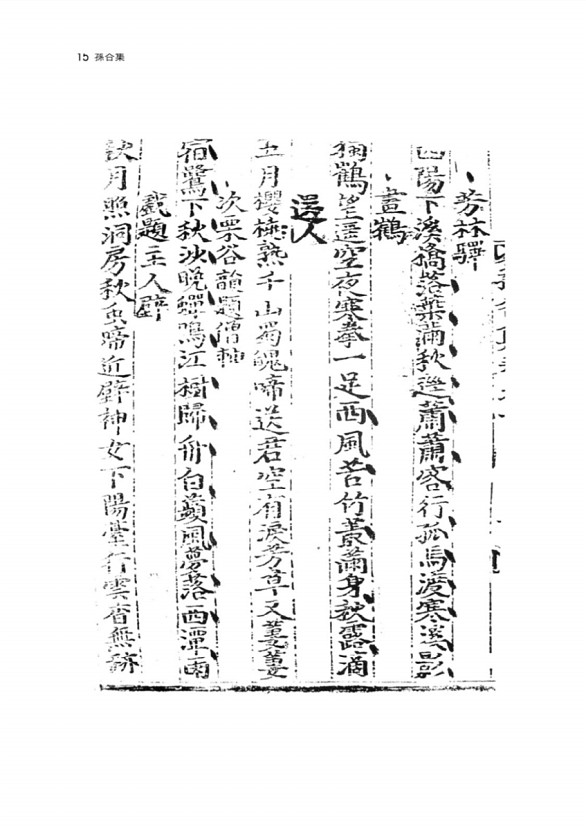 15 孫合集
芳林驛
西陽下溪橋落葉滿秋逕蕭蕭客行孤馬渡寒溪影
畫鶴
獨鶴望遙空夜寒拳一足西風苦竹叢滿身秋露滴
送人
五月櫻桃熟千山蜀魄啼送君空有淚芳草又萋萋
次栗谷韻題僧軸
宿鷺下秋沙晩蟬鳴江樹歸舟白蘋風夢落西潭雨
戲題主人壁
缺月照洞房秋虫啼近壁神女下陽臺行雲杳無跡